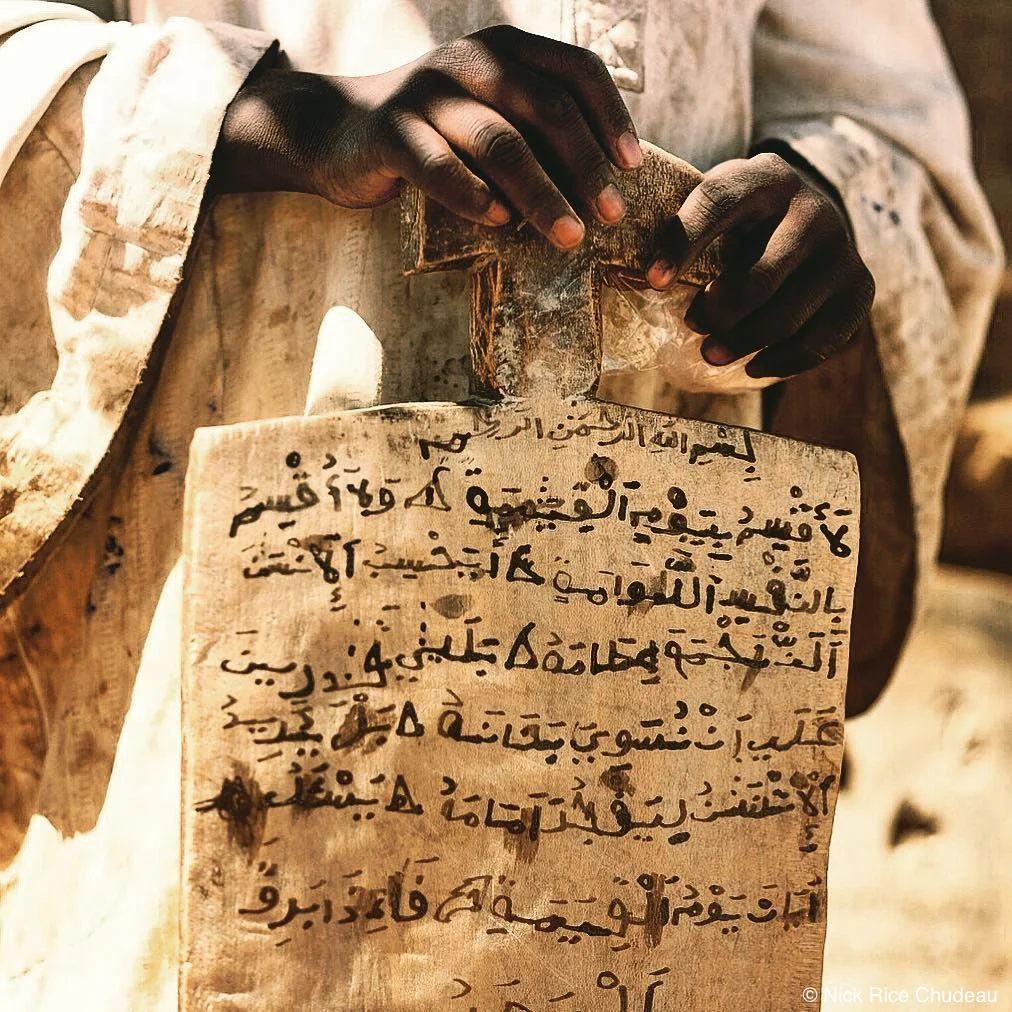 بسم الله الرحمن الرحيم
لَا أُقْسِمُ بِيَوْمِ اَلْقِيَمَةِ وَلَا أُقْسِمُ
بِالنَّفْسِ اَللَّوَامَةِ أَيَحْسِبُ اَلِانْسَنُ
أَلَنْ نَجْمَعَ عِظَامَهُ بَلَىٰ قَدِرِينَ
عَلَىٰ أَن نُسَوِيَ بَنَانَهُ بَلْ يُرِيدُ
اَلِانْسَنُ لِيَفْجُرَ أَمَامَهُ يَسْئَلُ
أَيَانَ يَوْمُ اَلْقِيَمَةِ فَإِذَا بَرِقَ
© Nick Rice Chudeau